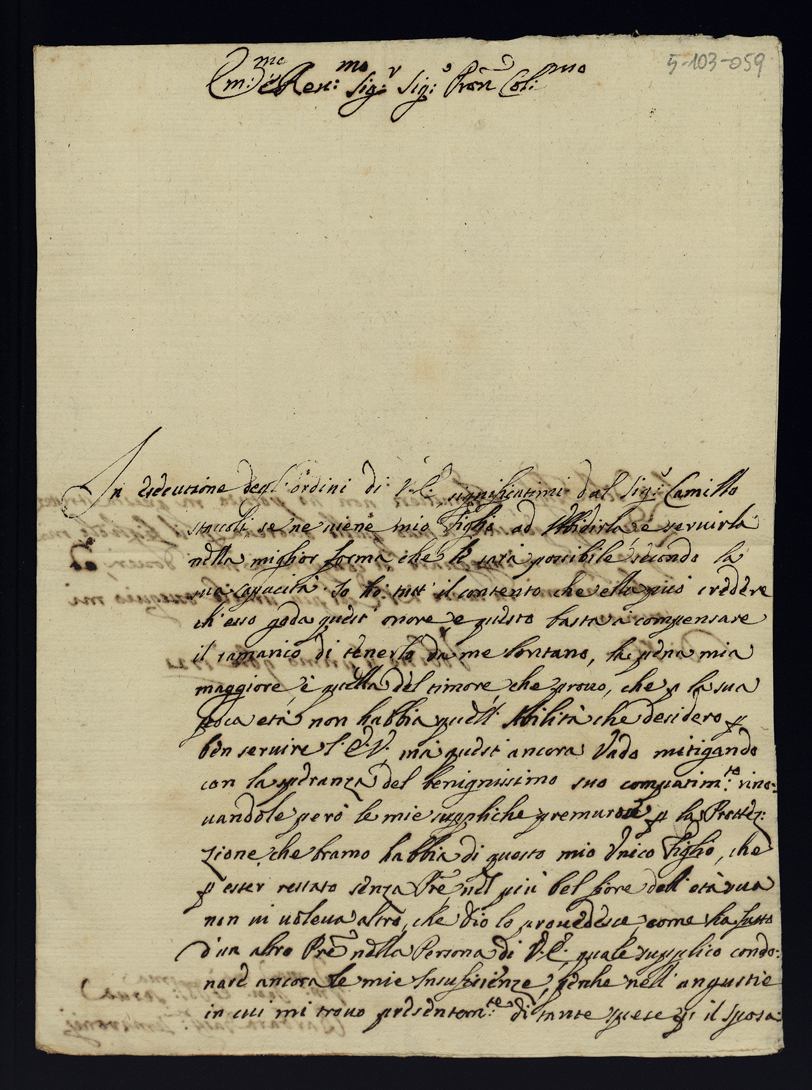 5-103-059
Em:mo e Reu:mo Sig:r Sig:r Pron Col:mo
In esecuzione degl'ordini di V.E. significatimi dal Sig:r Camillo
Staccoli se ne viene mio Figlio ad Vbbidirla e seruirla
nella miglior forma che li sarà possibile secondo la
sua capacità. Io hò tutt'il contento che ella può credere
ch'esso goda quest'onore e questo basta à compensare
il ramarico di tenerlo da me lontano, la pena mia
maggiore è quella del timore che prouo, che p la sua
poca età non habbia quell'Abilità che desidero p
ben seruire l'E.V. mà quest'ancora vado mitigando
con la speranza del benignissimo suo compatim:to rino=
uandole però le mie suppliche premurose p la Protte=
zione, che bramo habbia di questo mio Vnico Figlio, che
p esser restato senza Pre nel più bel fiore dell'età sua
non ui uoleua altro, che Dio lo prouedesse, come hà fatto
d'un altro Pre nella Persona di V.E. quale supplico condo=
nare ancora le mie Insufficienze, perche nell'angustie
in cui mi trouo presentem:te di tante spese p il sposa=